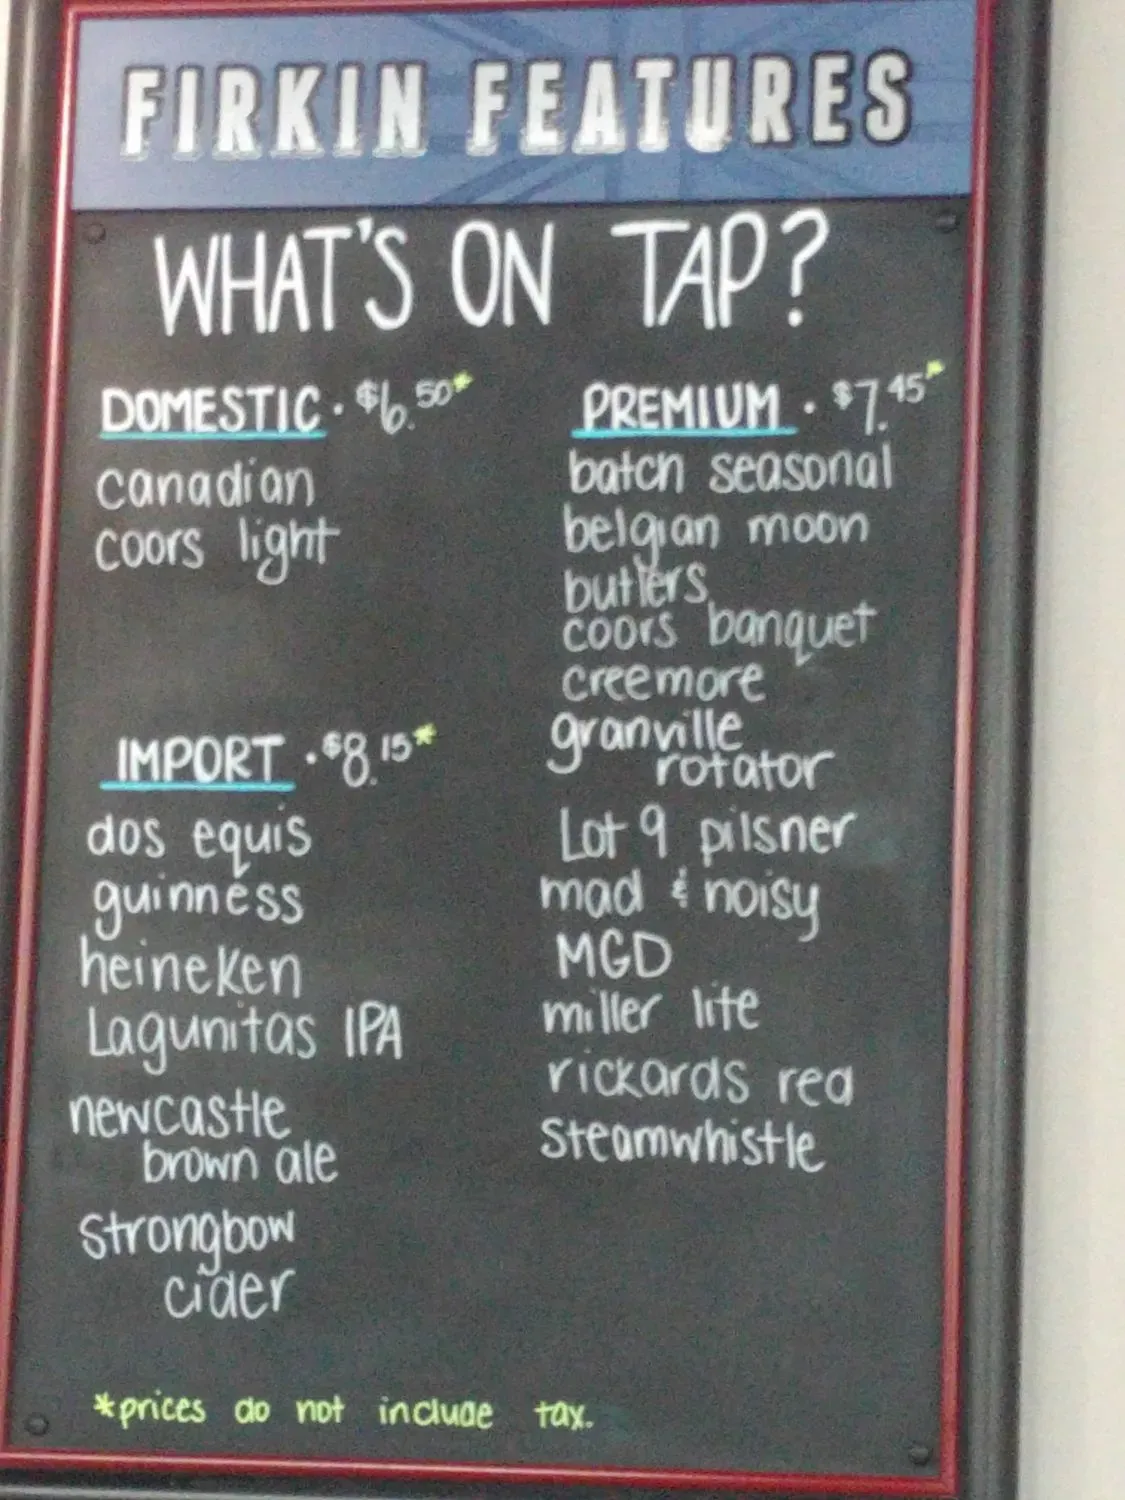 FIRKIN FEATURES
WHAT'S ON TAP?
DOMESTIC · $6.50*
canadian
coors light
IMPORT · $8.15*
dos equis
guinness
heineken
Lagunitas IPA
newcastle
brown ale
strongbow
cider
PREMIUM · $7.45*
batch seasonal
belgian moon
butlers
coors banquet
creemore
granville
rotator
Lot 9 pilsner
mad & noisy
MGD
miller lite
rickards red
steamwhistle
*prices do not include tax.